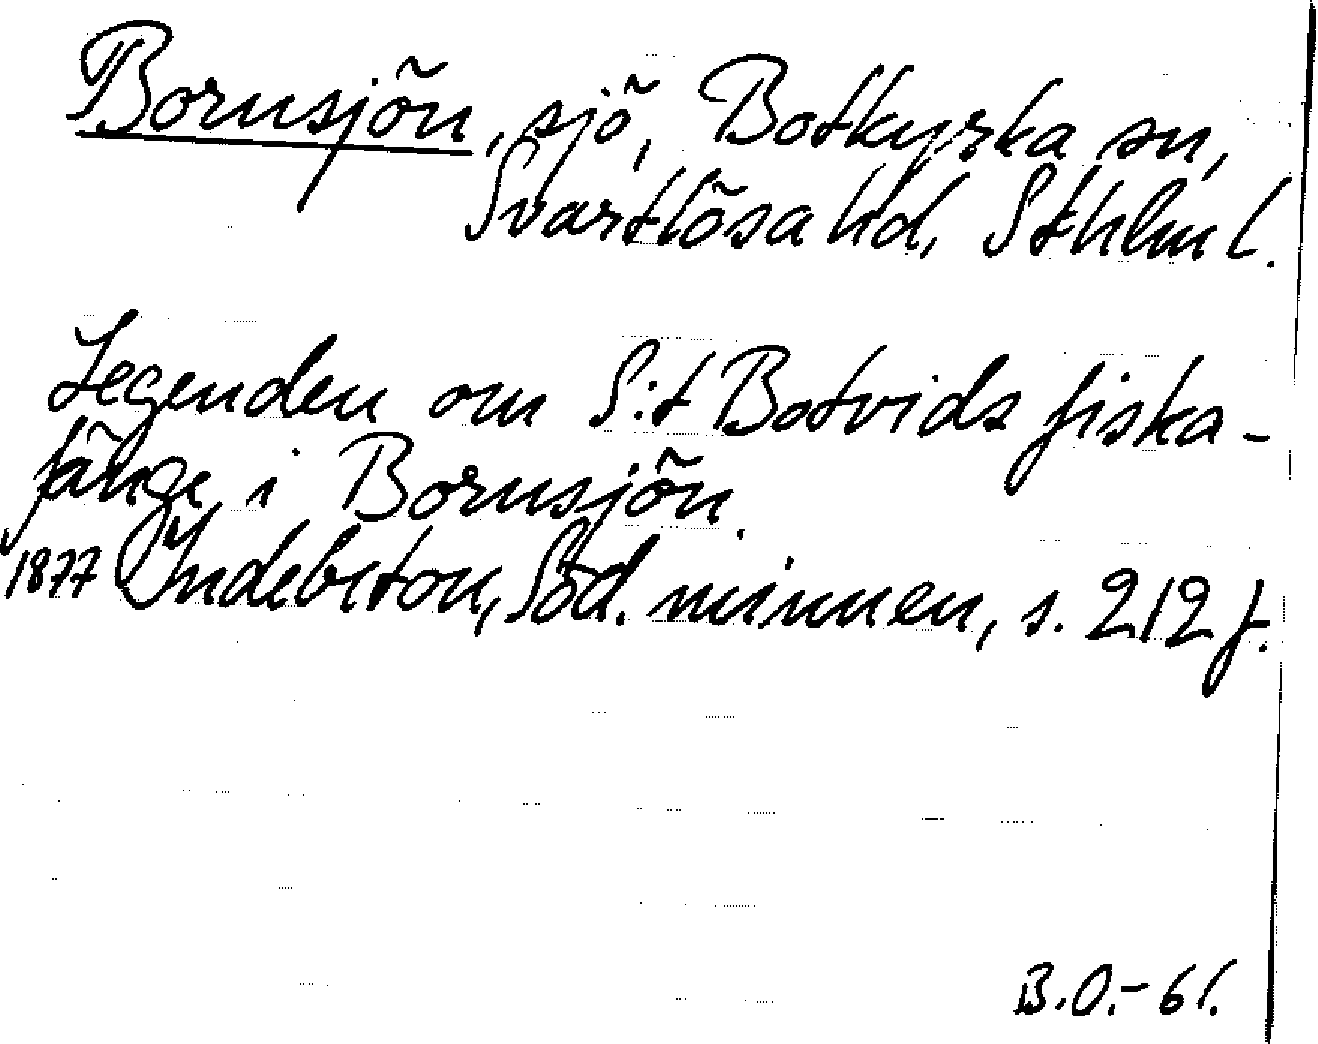 Bornsjön, sjö, Botkyrka sn,
Svartlösa hd, Sthlm l.
Legenden om S:t Botvids fiska-
fänge i Bornsjön.
1877 Indebetou, Söd. minnen, s. 212 f.
B.O.-61.